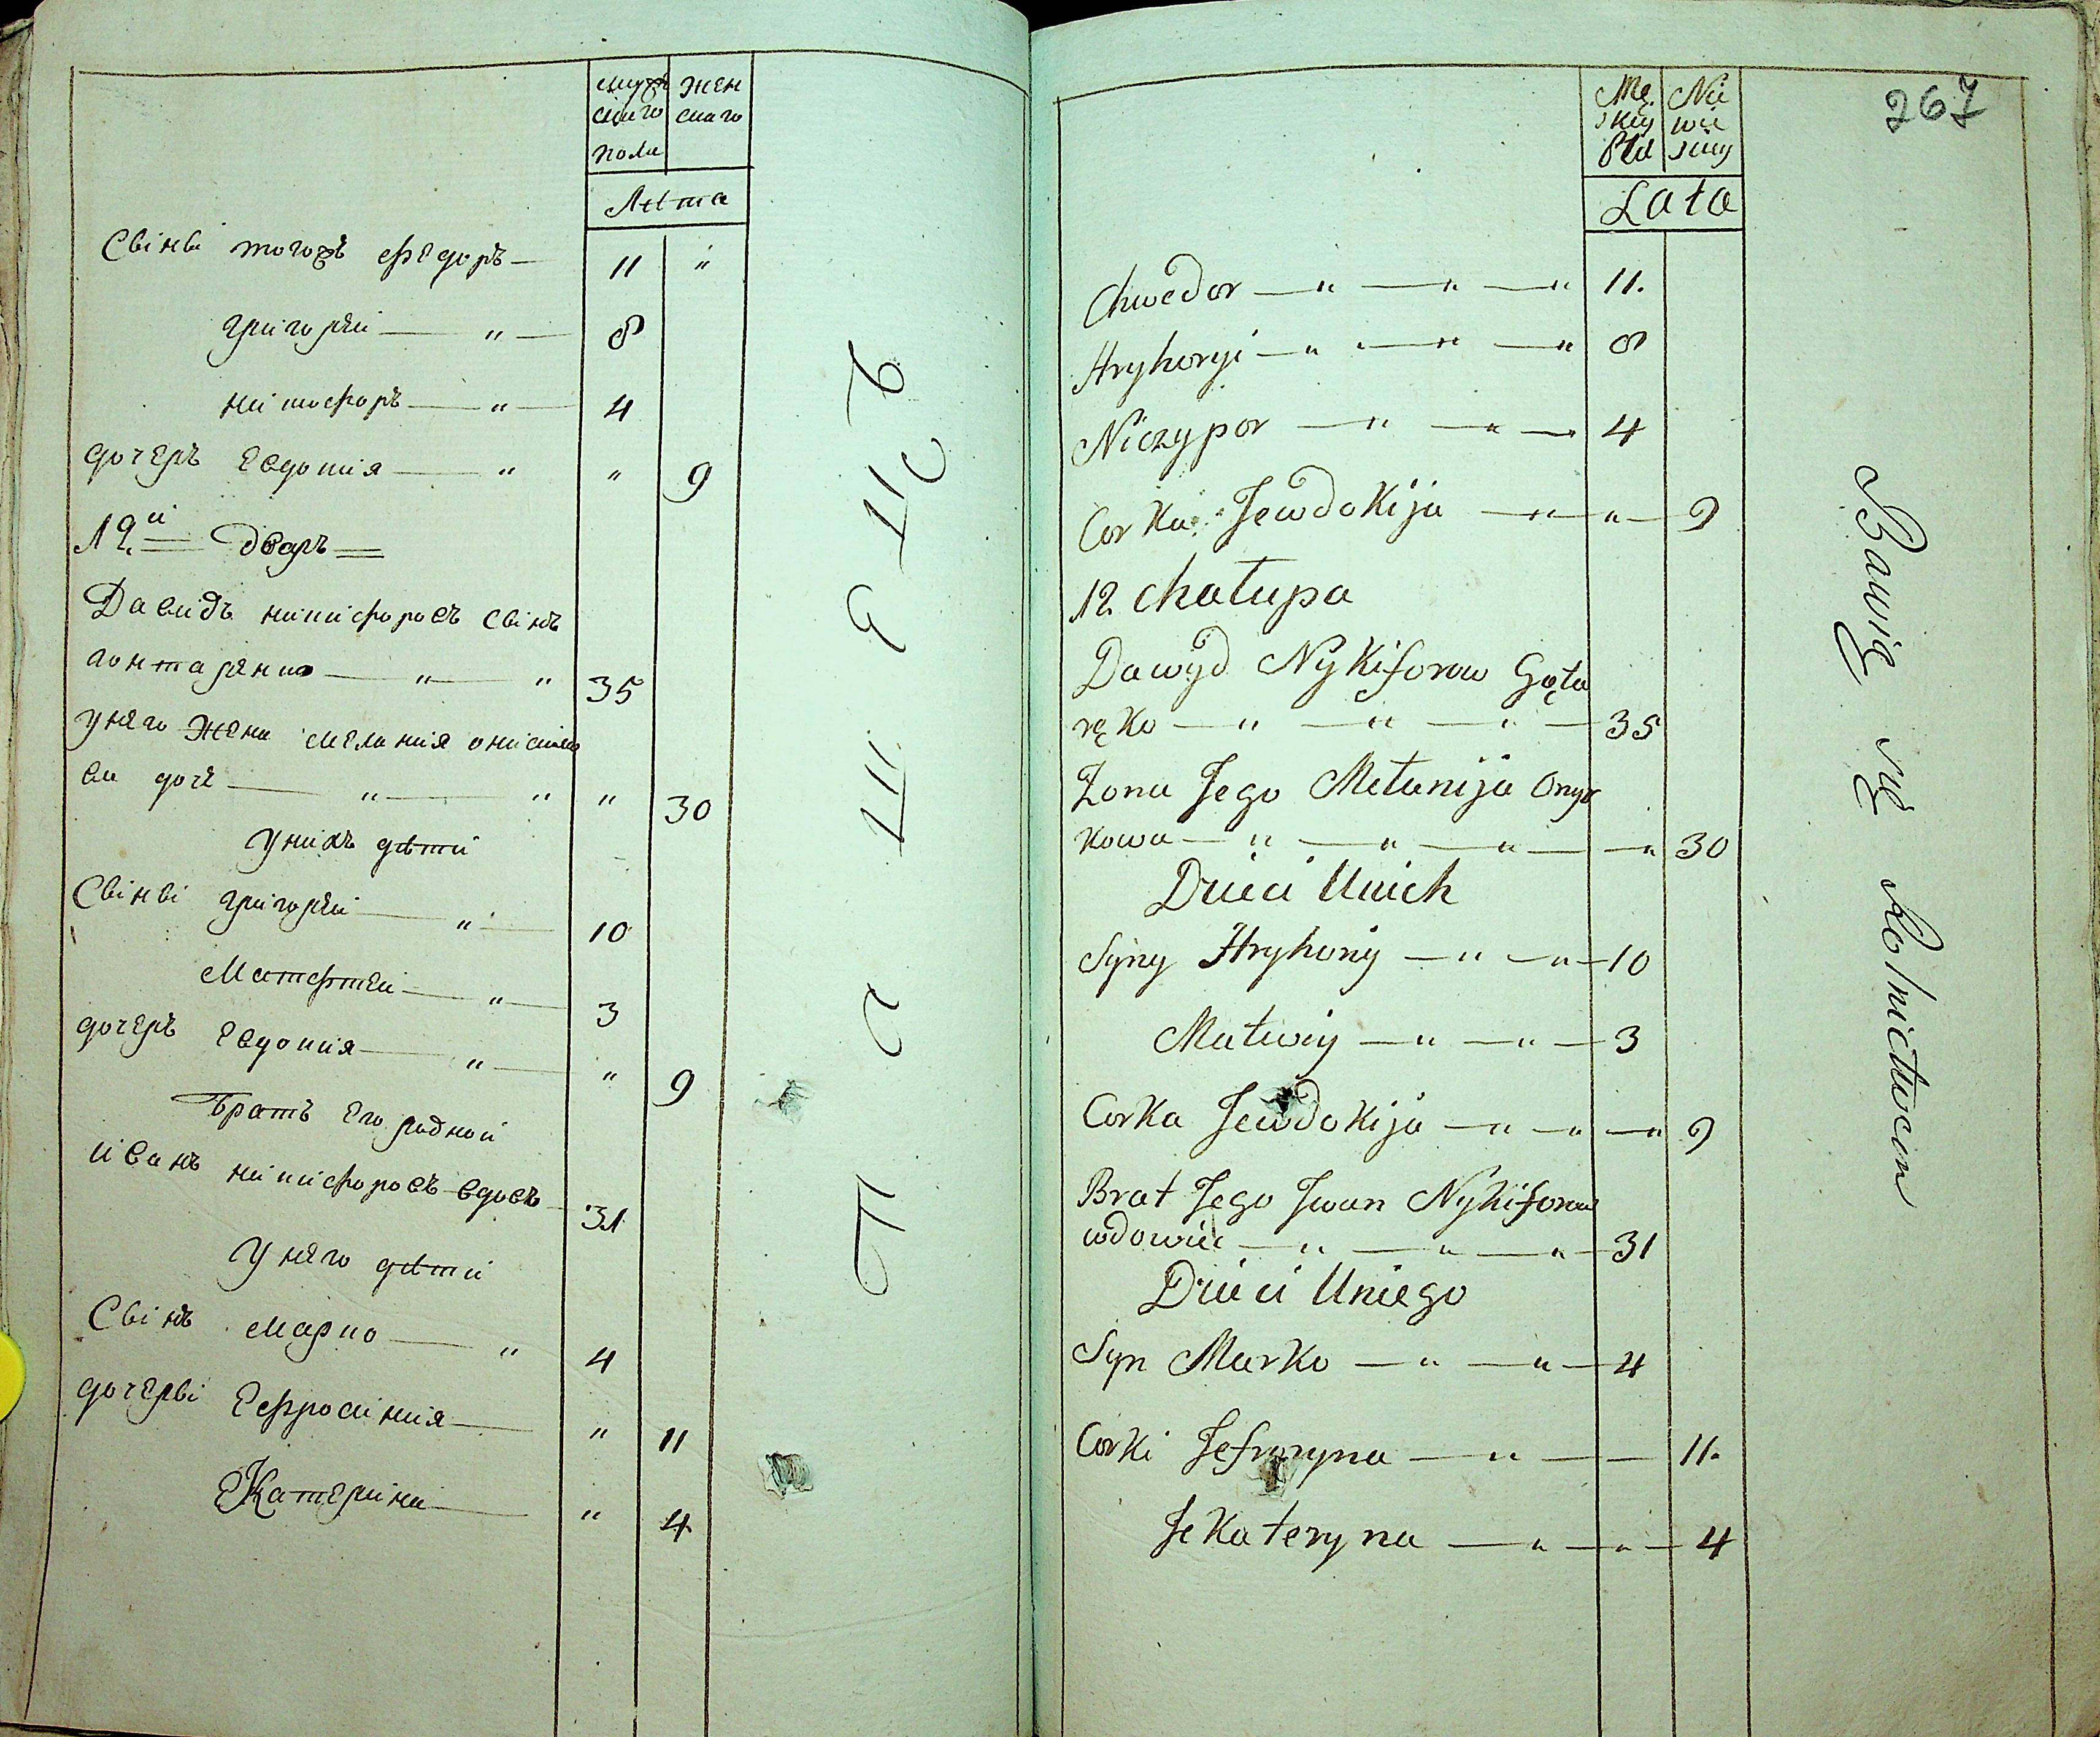 мужскаго пола
женскаго
Лѣта
Сыны тогожъ Федоръ — 11 "
Григорей — " — 8
Никифоръ — " — 4
дочеръ Евдокия — " " 9
12.й Дворъ
Давидъ никифоровъ сынъ
гонтаренко — " — " 35
У него жена мелания онискова
дочь — " — " " 30
У нихъ дѣти
Сыны Григорей — " — 10
Матфтей — " — 3
дочеръ Евдокия — " — " 9
Братъ Его родной
иванъ никифоровъ вдовъ 31
У него дѣти
Сынъ марко — " 4
дочеры Ефросиния — " 11
Екатерина — " 4
267
Męskiey Płci
Niewieściey
Lata
Chwedor — " — " — " 11.
Hryhoryi — " — " — " 8
Niczypor — " — " — 4
Corka Jewdokija — " — " — 9
12 chałupa
Dawyd Nykiforow Gęta
ręko — " — " — " — 35
Zona Jego Mełanija Onys
kowa — " — " — " — " 30
Dzieci Unich
Syny Hryhoriy — " — " — 10
Matwiy — " — " — 3
Corka Jewdokija — " — " — " 9
Brat Jego Jwan Nykiforow
wdowiec — " — " — " — 31
Dzieci Uniego
Syn Marko — " — " — 4
Corki Jefrozyna — " — — 11.
Jekateryna — " — " — 4
Bawię się Rolnictwem